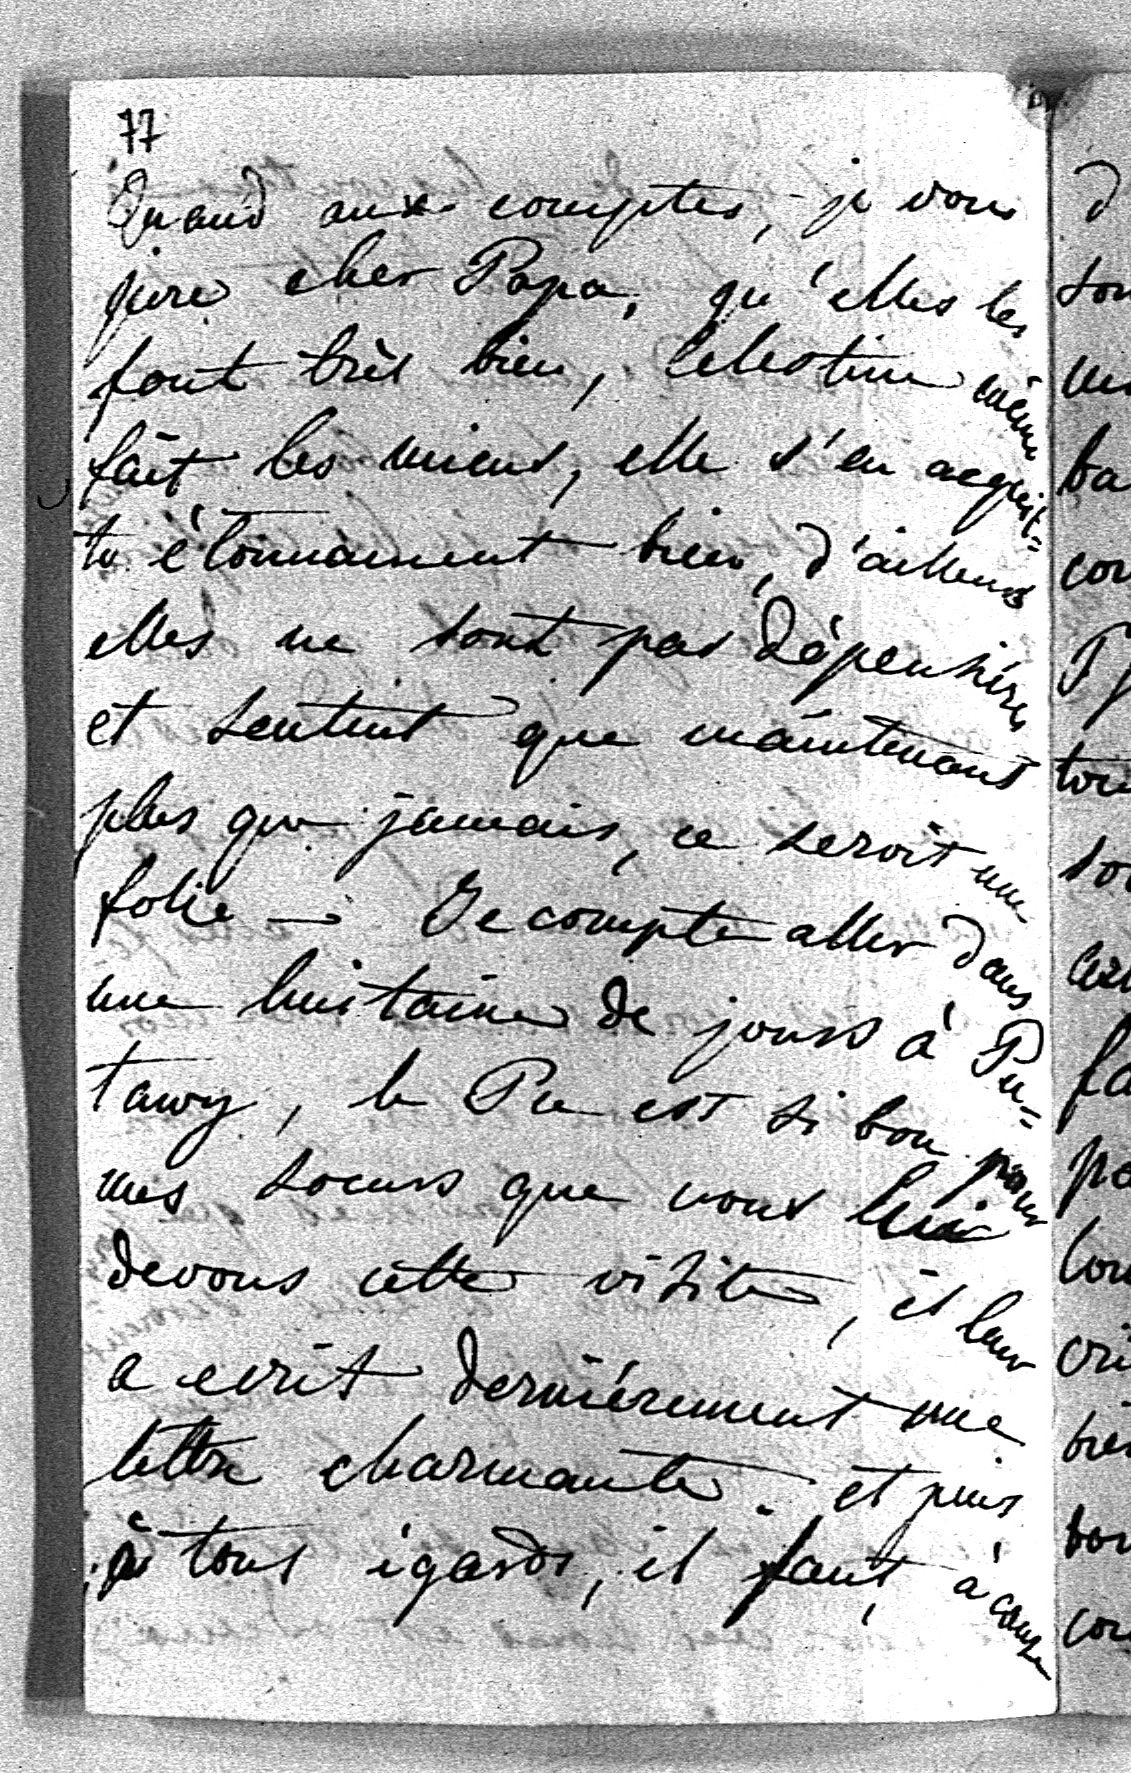 77
Quand aux comptes, je vous
jure cher Papa, qu'elles les
font très bien, Celestine même
fait les miens, elle s'en acquit=
te étonnament bien, d'ailleurs
elles ne sont pas dépensières
et sentent que maintenant
plus que jamais, ce seroit une
folie — Je compte aller dans
une huitaine de jours à Pu=
tawy, le Pce est si bon pour
mes soeurs que nous lui
devons cette visite, il leur
a ecrit derniérement une
lettre charmante. et puis
à tous égards, il faut, à cause